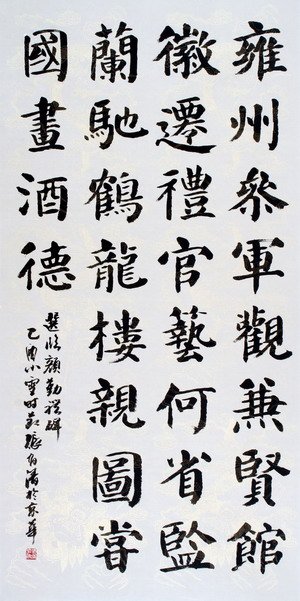 雍州參軍觀兼賢館
徽遷禮官藝何省監
蘭馳鶴龍樓親圖嘗
國畫酒德
選臨顏勤禮碑
乙酉小雪時於京華